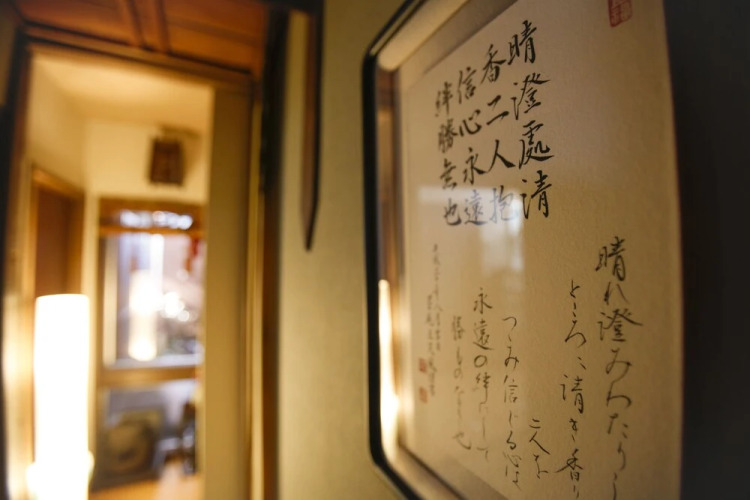 晴澄處清
香二人抱
信心永遠
絆勝無也
晴れ澄みわたりし
ところに清き香り
二人を
つゝみ信じる心は
永遠の絆にして